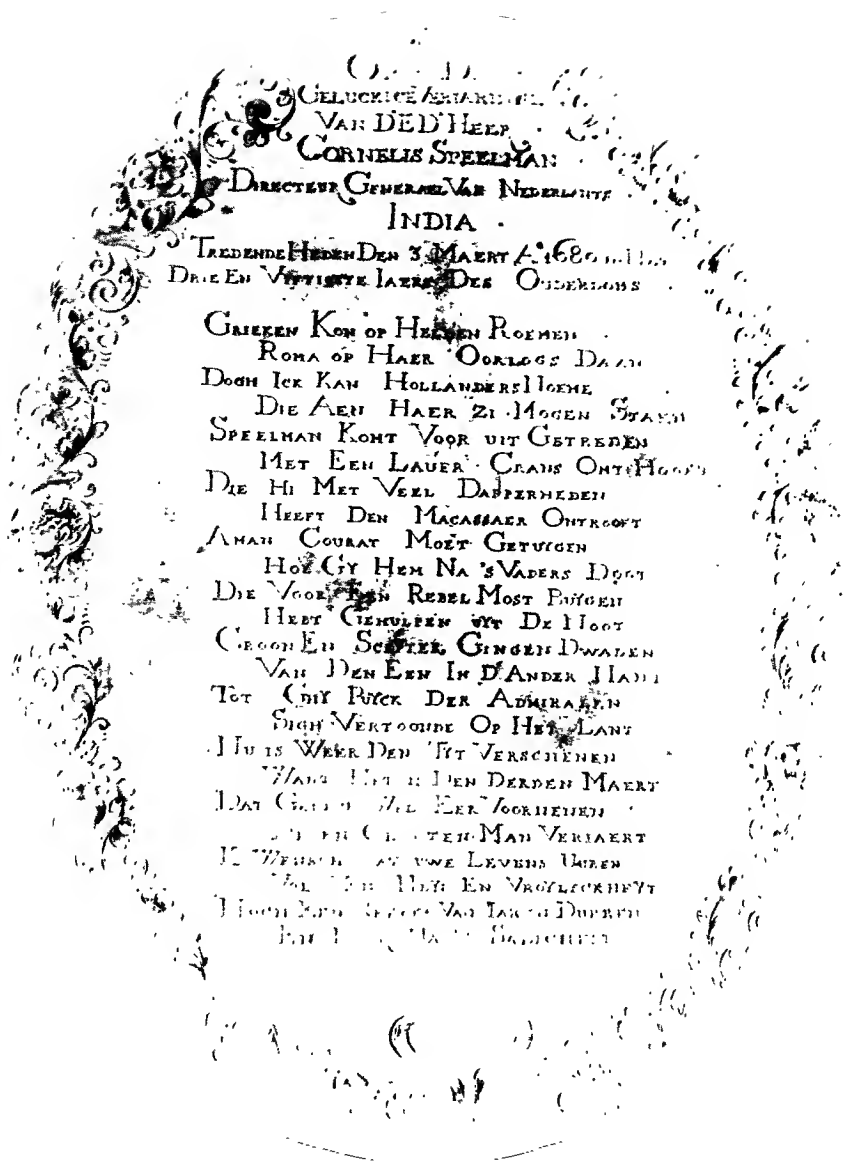 Op De
Geluckige Verjaringe
Van D'E D'Heer
Cornelis Speelman
Directeur Generael Van Nederlants
India
Tredende Heden Den 3 Maert Ao 1680 in Het
Drie En Vyftigste Iaers Des Ouderdoms
Grieken Kon op Helden Roemen
Roma op Haer Oorlogs Daan
Doch Ick Kan Hollanders Noeme
Die Aen Haer Zi Mogen Staen
Speelman Komt Voor uit Getreden
Met Een Lauer Crans Ont Hooft
Die Hi Met Veel Dapperheden
Heeft Den Macassaer Ontrooft
Aman Courat Moet Getuygen
Hoe Gy Hem Na 's Vaders Doot
Die Voor Een Rebel Most Buygen
Hebt Gehulpen uyt De Noot
Croon En Scepter Gingen Dwalen
Van Den Een In D'Ander Hant
Tot Ghy Puyck Der Admiralen
Sigh Vertoonde Op Het Lant
Nu is Weer Den Tyt Verschenen
Want Het is Den Derden Maert
Dat Wel Eer Voorhenen
Man Verjaert
K Wensch Dat uwe Levens Uuren
Vol Van Heyl En Vroylyckheyt
Noch Een Van Iaren Dueren
En Salicheyt